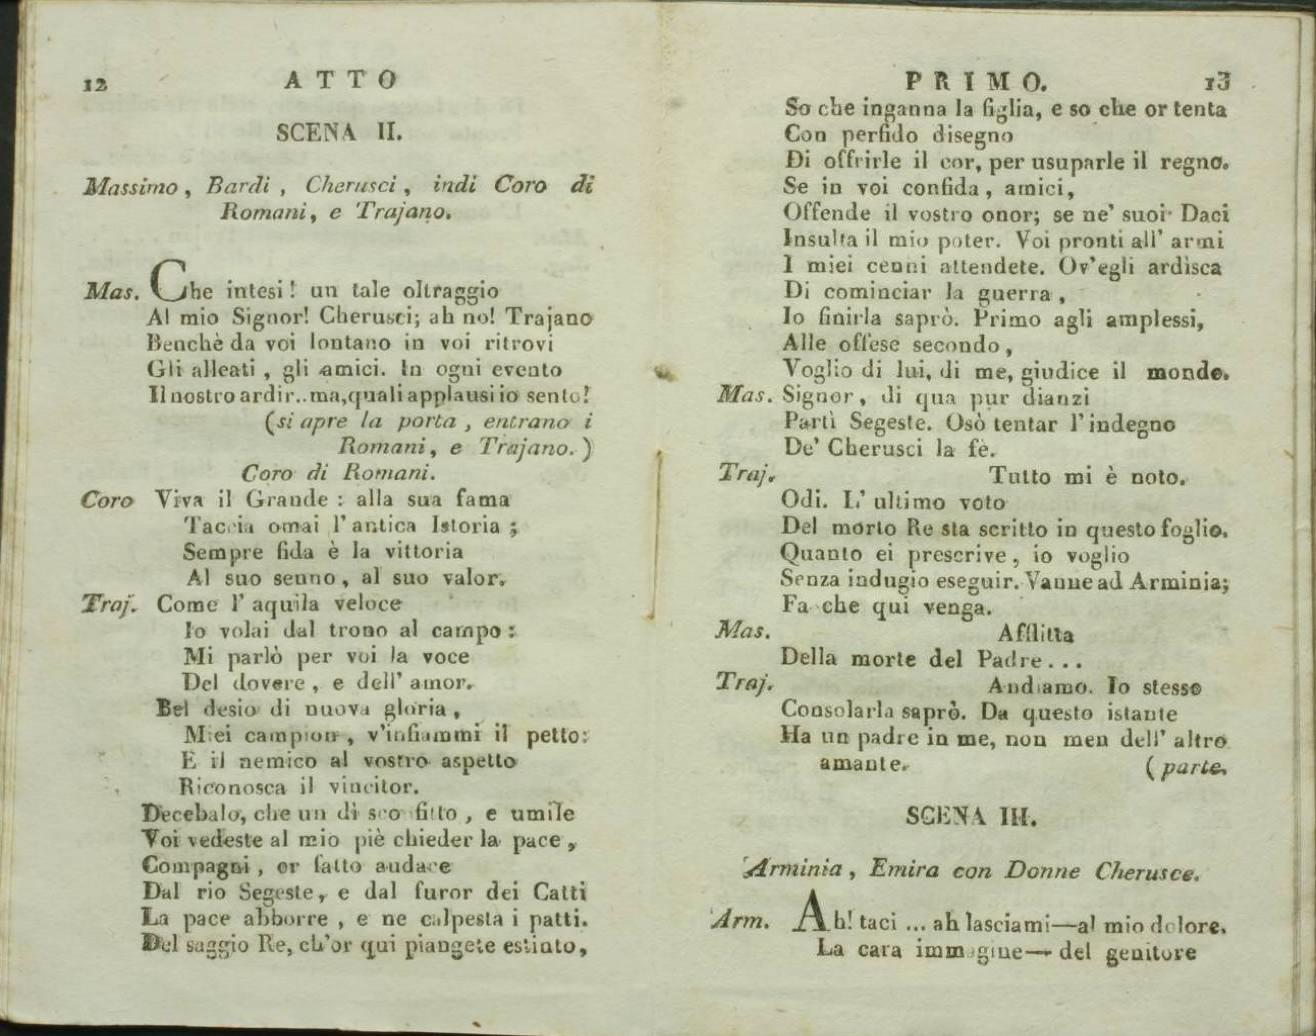 12 ATTO
SCENA II.
Massimo, Bardi, Cherusci, indi Coro di
Romani, e Trajano.
Mas. Che intesi! un tale oltraggio
Al mio Signor! Cherusci; ah no! Trajano
Benchè da voi lontano in voi ritrovi
Gli alleati, gli amici. In ogni evento
Il nostro ardir..ma, quali applausi io sento!
(si apre la porta, entrano i
Romani, e Trajano.)
Coro di Romani.
Coro Viva il Grande: alla sua fama
Taccia omai l'antica Istoria;
Sempre fida è la vittoria
Al suo senno, al suo valor.
Traj. Come l'aquila veloce
Io volai dal trono al campo:
Mi parlò per voi la voce
Del dovere, e dell'amor.
Bel desio di nuova gloria,
Miei campion, v'infiammi il petto:
E il nemico al vostro aspetto
Riconosca il vincitor.
Decebalo, che un dì sconfitto, e umile
Voi vedeste al mio piè chieder la pace,
Compagni, or fatto audace
Dal rio Segeste, e dal furor dei Catti
La pace abborre, e ne calpesta i patti.
Del saggio Re, ch'or qui piangete estinto,
PRIMO. 13
So che inganna la figlia, e so che or tenta
Con perfido disegno
Di offrirle il cor, per usuparle il regno.
Se in voi confida, amici,
Offende il vostro onor; se ne' suoi Daci
Insulta il mio poter. Voi pronti all' armi
I miei cenni attendete. Ov'egli ardisca
Di cominciar la guerra,
Io finirla saprò. Primo agli amplessi,
Alle offese secondo,
Voglio di lui, di me, giudice il mondo.
Mas. Signor, di qua pur dianzi
Partì Segeste. Osò tentar l'indegno
De' Cherusci la fè.
Traj. Tutto mi è noto.
Odi. L'ultimo voto
Del morto Re sta scritto in questo foglio.
Quanto ei prescrive, io voglio
Senza indugio eseguir. Vanne ad Arminia;
Fa che qui venga.
Mas. Afflitta
Della morte del Padre...
Traj. Andiamo. Io stesso
Consolarla saprò. Da questo istante
Ha un padre in me, non men dell' altro
amante. (parte.
SCENA III.
Arminia, Emira con Donne Cherusce.
Arm. Ah! taci ... ah lasciami—al mio dolore.
La cara immagine—del genitore